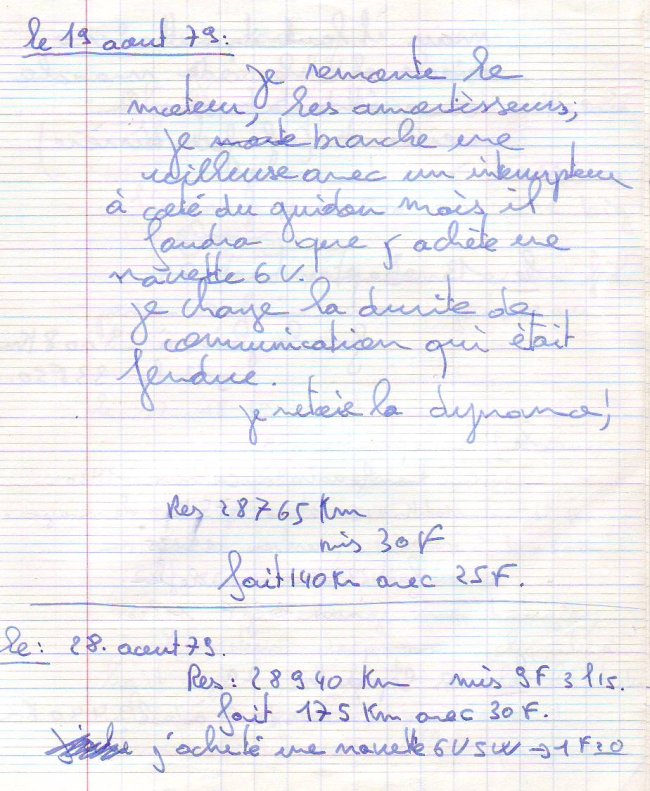 le 19 aout 79:
je remonte le
moteur, les amortisseurs,
je branche une
veilleuse avec un interrupteur
à coté du guidon mais il
faudra que j'achète une
navette 6V.
je change la durite de
communication qui était
fendue.
je netoie la dynamo,
Res 28765 Km
mis 30F
fait 140 Km avec 25F.
le: 28. aout 79.
Res: 28940 Km mis 9F 3 l 15.
fait 175 Km avec 30F.
j'acheté une navette 6V5W → 1F20